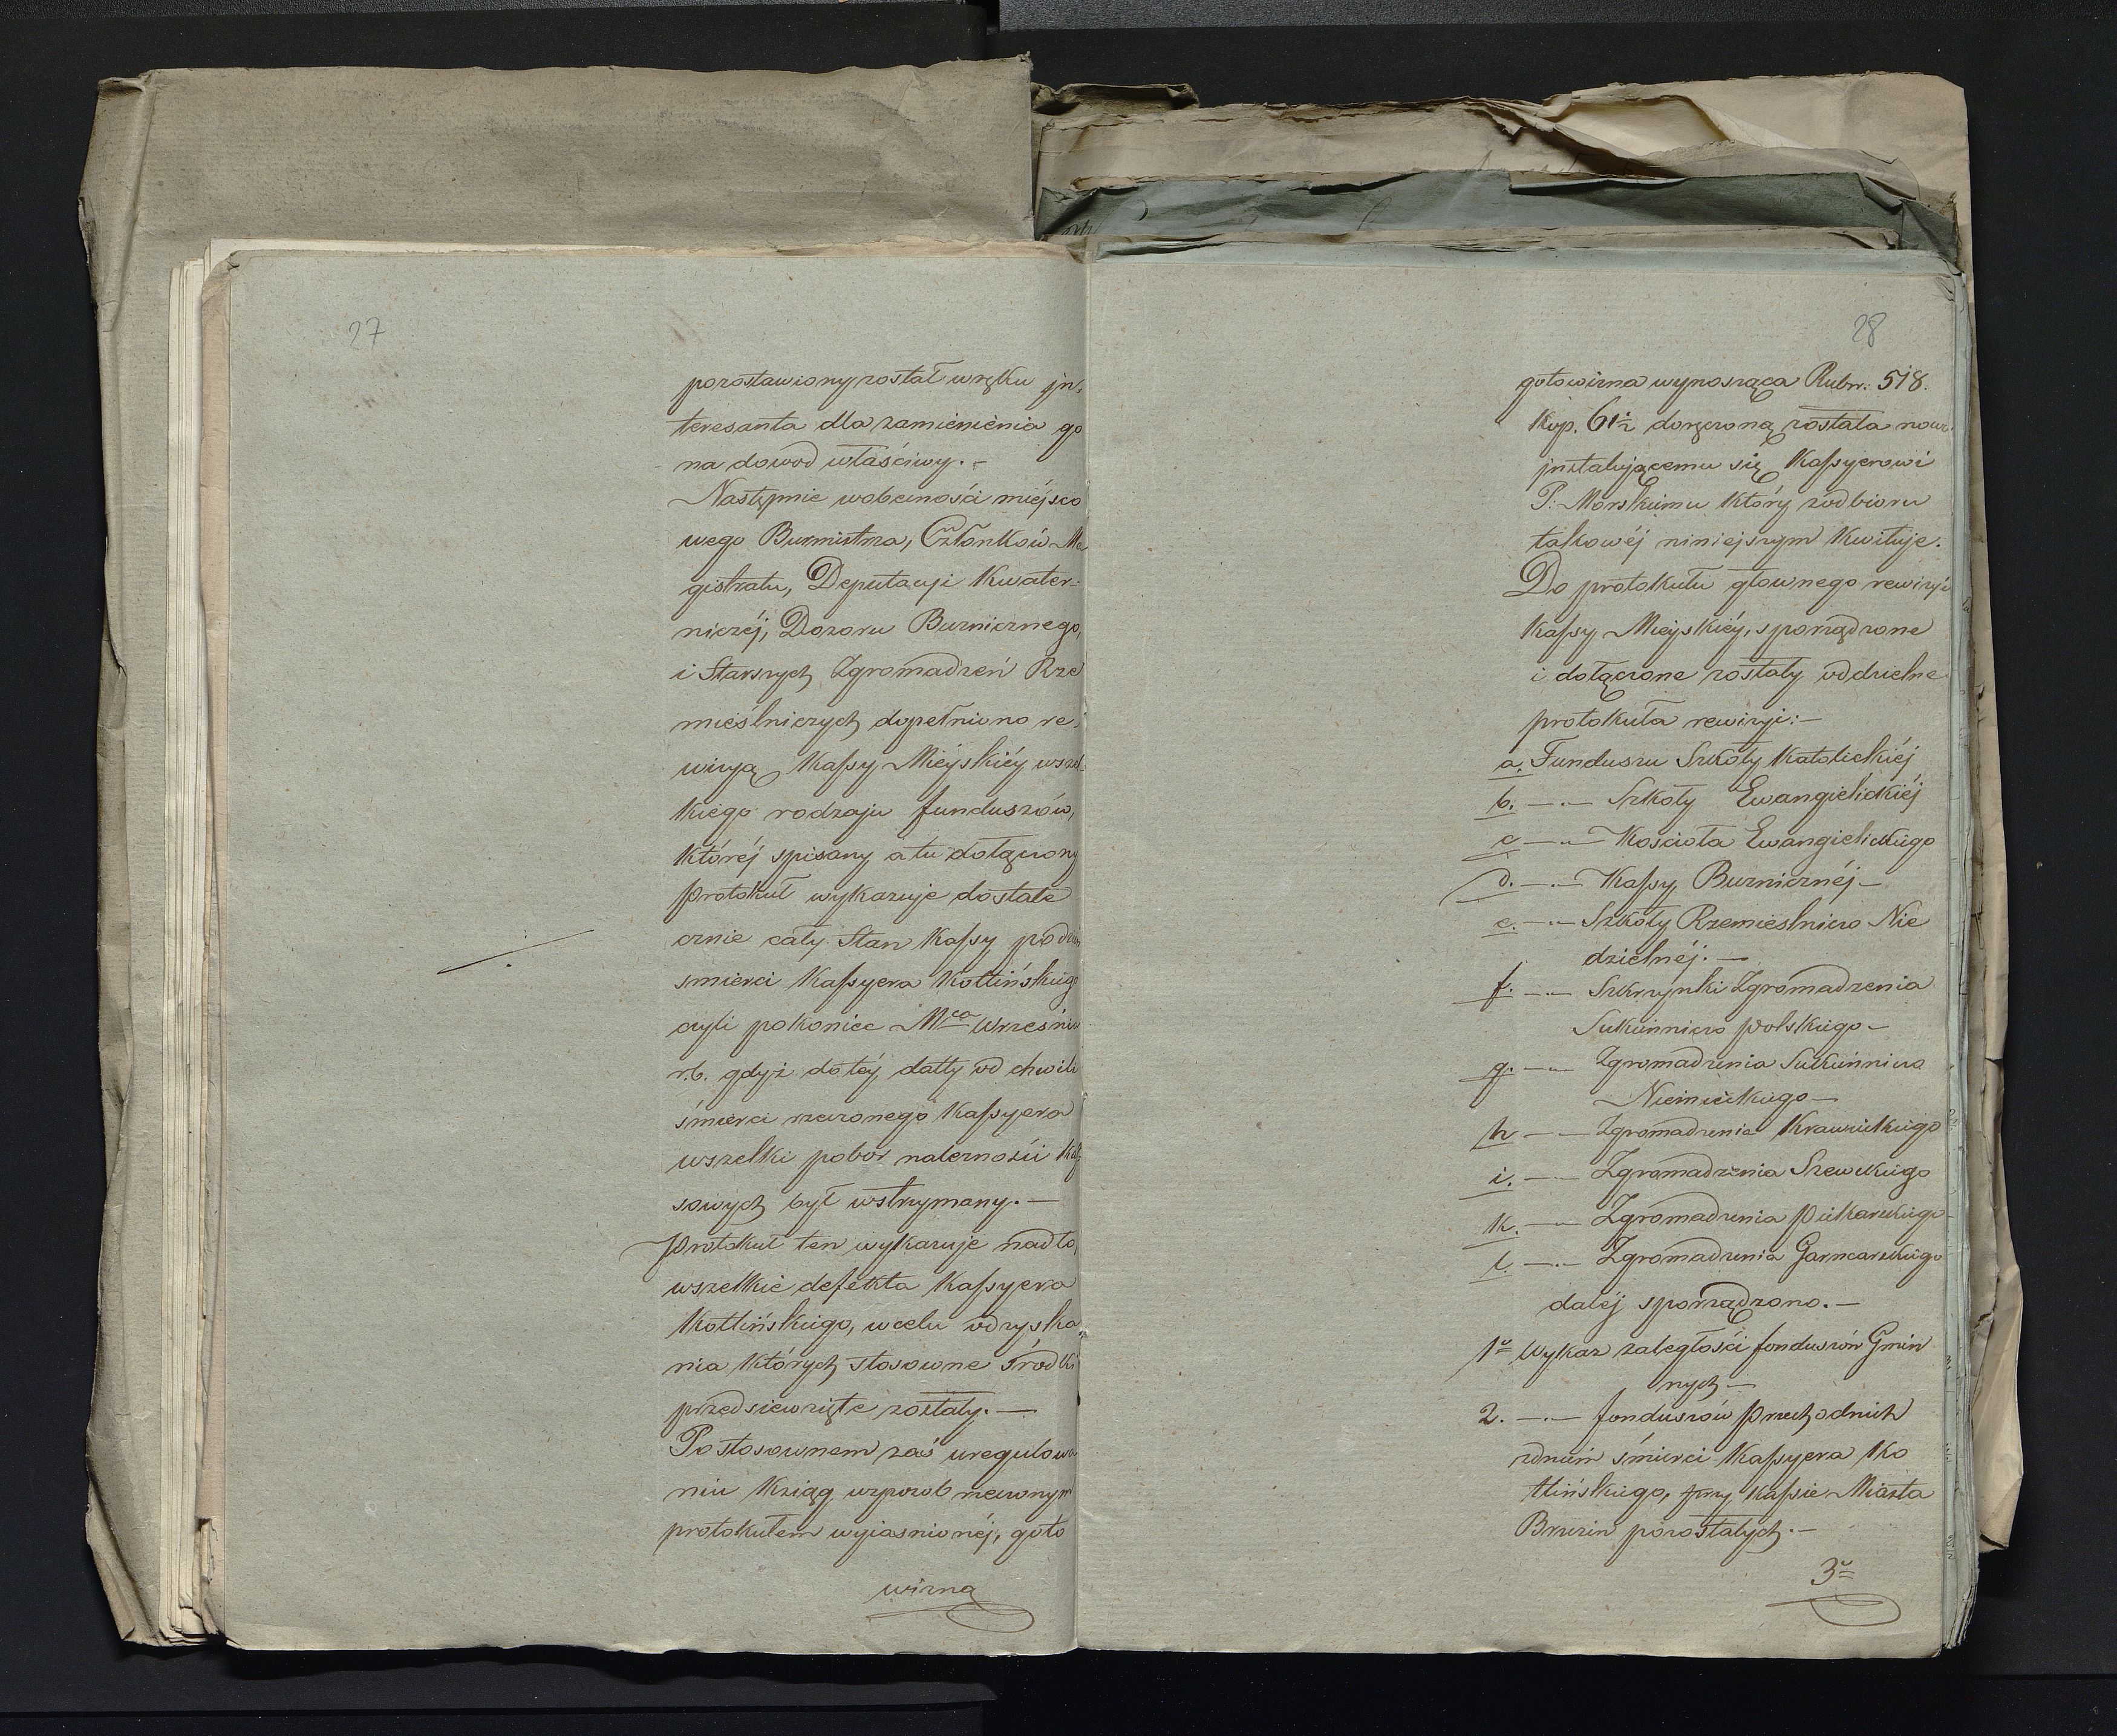 27
pozostawiony został w ręku jn-
teresanta dla zamienienia go
na dowod właściwy. –
Następnie wobecności miéjsco
wego Burmistrza, Członków Ma
gistratu, Deputacyi Kwater-
niczéj, Dozoru Bużnicznego,
i Starszych Zgromadzeń Rze
mieślniczych dopełniono re-
wizyą Kassy Miéjskiéy wszel-
kiego rodzaju funduszów,
któréj spisany a tu dołączony
Protokuł wykazuje dostate
cznie cały Stan Kassy podzień
smierci Kassyera Kotlińskiego
czyli pokoniec Mca Września
r.b. gdyż do téj datty od chwili
śmierci rzeczonego Kassyera
wszelki pobór należności Kas
sowych był wstrzymany. –
Protokuł ten wykazuje nadto,
wszelkie defekta Kassyera
Kotlińskiego, wcelu odzyska
nia których stosowne środki
przedsiewzięte zostały. –
Po stosownem zaś uregulowa
niu Ksiąg wsposob rzeczonym
protokułem wyjasnionéj, goto
wizna
28
gotowizna wynosząca Rubsr: 518.
Kop. 61½ doręczoną została nowo
jnstalującemu się Kassyerowi
P: Morskiemu który zodbioru
takowéj niniejszym Kwituje.
Do protokułu głownego rewizyi
Kassy Mieyskiéy, sporządzone
i dołączone zostały oddzielne
protokuła rewizyi: –
a. Funduszu Szkoły Katolickiéj
b. –„– Szkoły Ewangielickiéj
c –„– Kościoła Ewangielickiego
d. –„– Kassy Bużnicznéj –
e. –„– Szkoły Rzemieslniczo Nie
dzielnéj. –
f. –„– Szkrzynki Zgromadzenia
Sukienniczo polskiego –
g. –„– Zgromadzenia Sukiennicz
Niemieckiego –
h –„– Zgromadzenia Krawieckiego
i. –„– Zgromadzenia Szewckiego
k. –„– Zgromadzenia Piekarskiego
l. –„– Zgromadzenia Garncarskiego
daléj sporządzono. –
1o Wykaz zaległości fonduszów Gmin
nych –
2. –„– fonduszów Przechodnich
zdniem śmierci Kassyera Ko
tlińskiego, przy Kassie Miasta
Brzezin pozostałych. –
3o